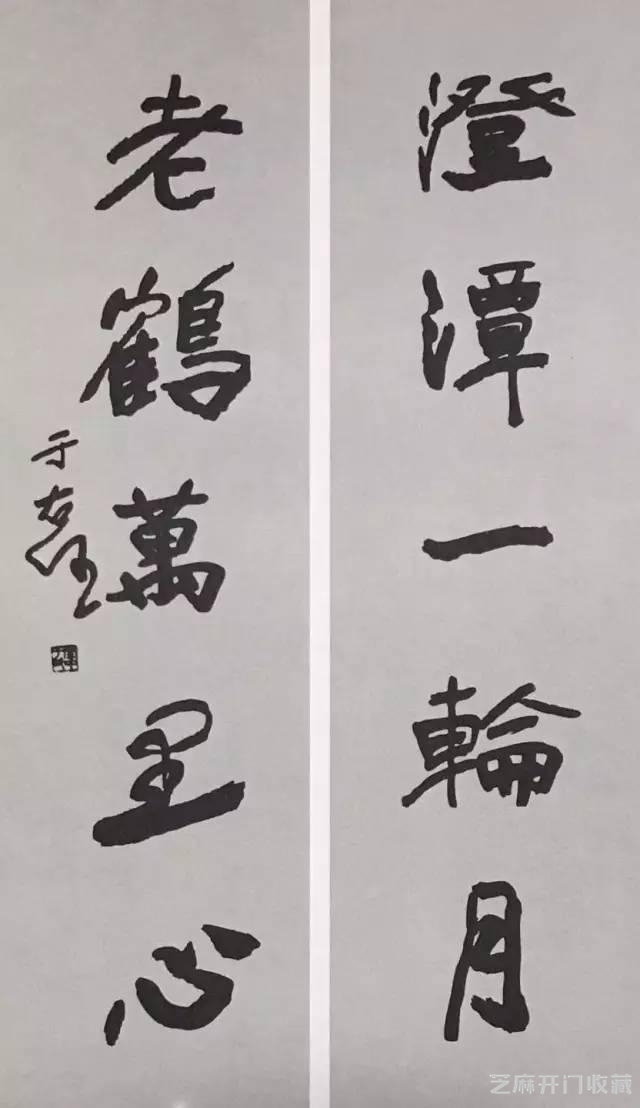 澄潭一輪月
老鶴萬里心
于右任
芝麻开门收藏